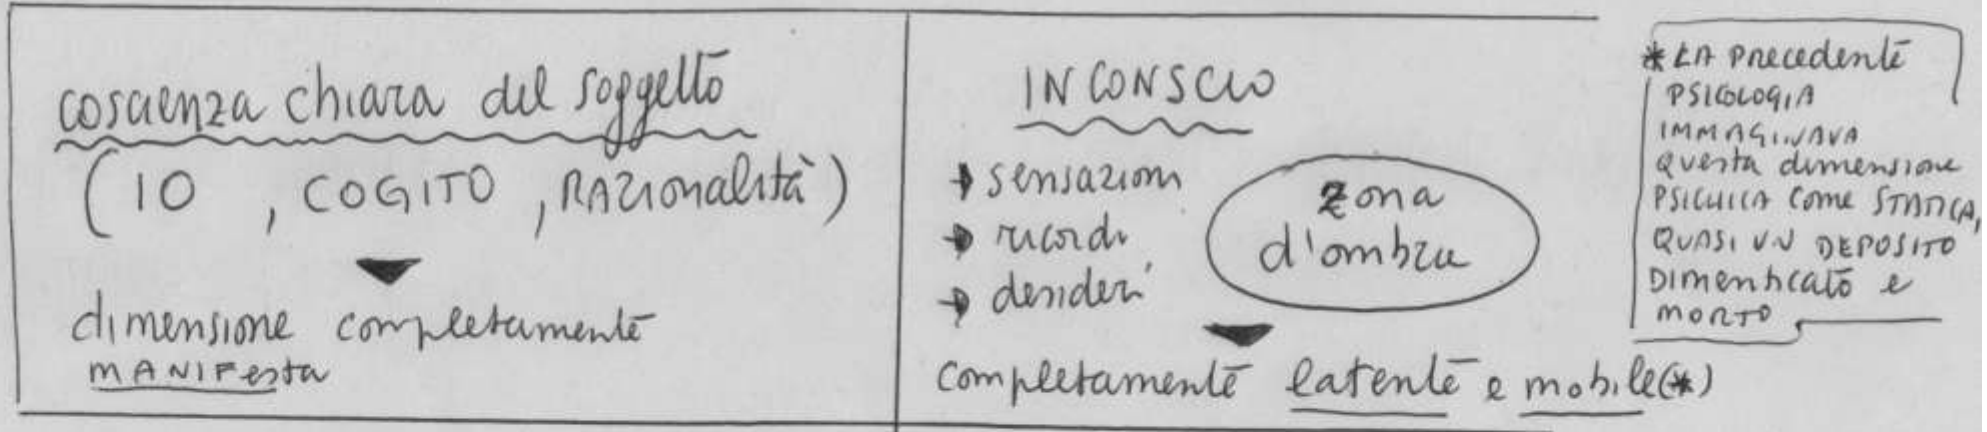 coscienza chiara del soggetto
(IO, COGITO, RAZIONALITÀ)
dimensione completamente
MANIFESTA
INCONSCIO
→ sensazioni
→ ricordi
→ desideri
zona
d'ombra
completamente latente e mobile(*)
* LA PRECEDENTE
PSICOLOGIA
IMMAGINAVA
QUESTA dimensione
PSICHICA COME STATICA,
QUASI UN DEPOSITO
DIMENTICATO e
MORTO